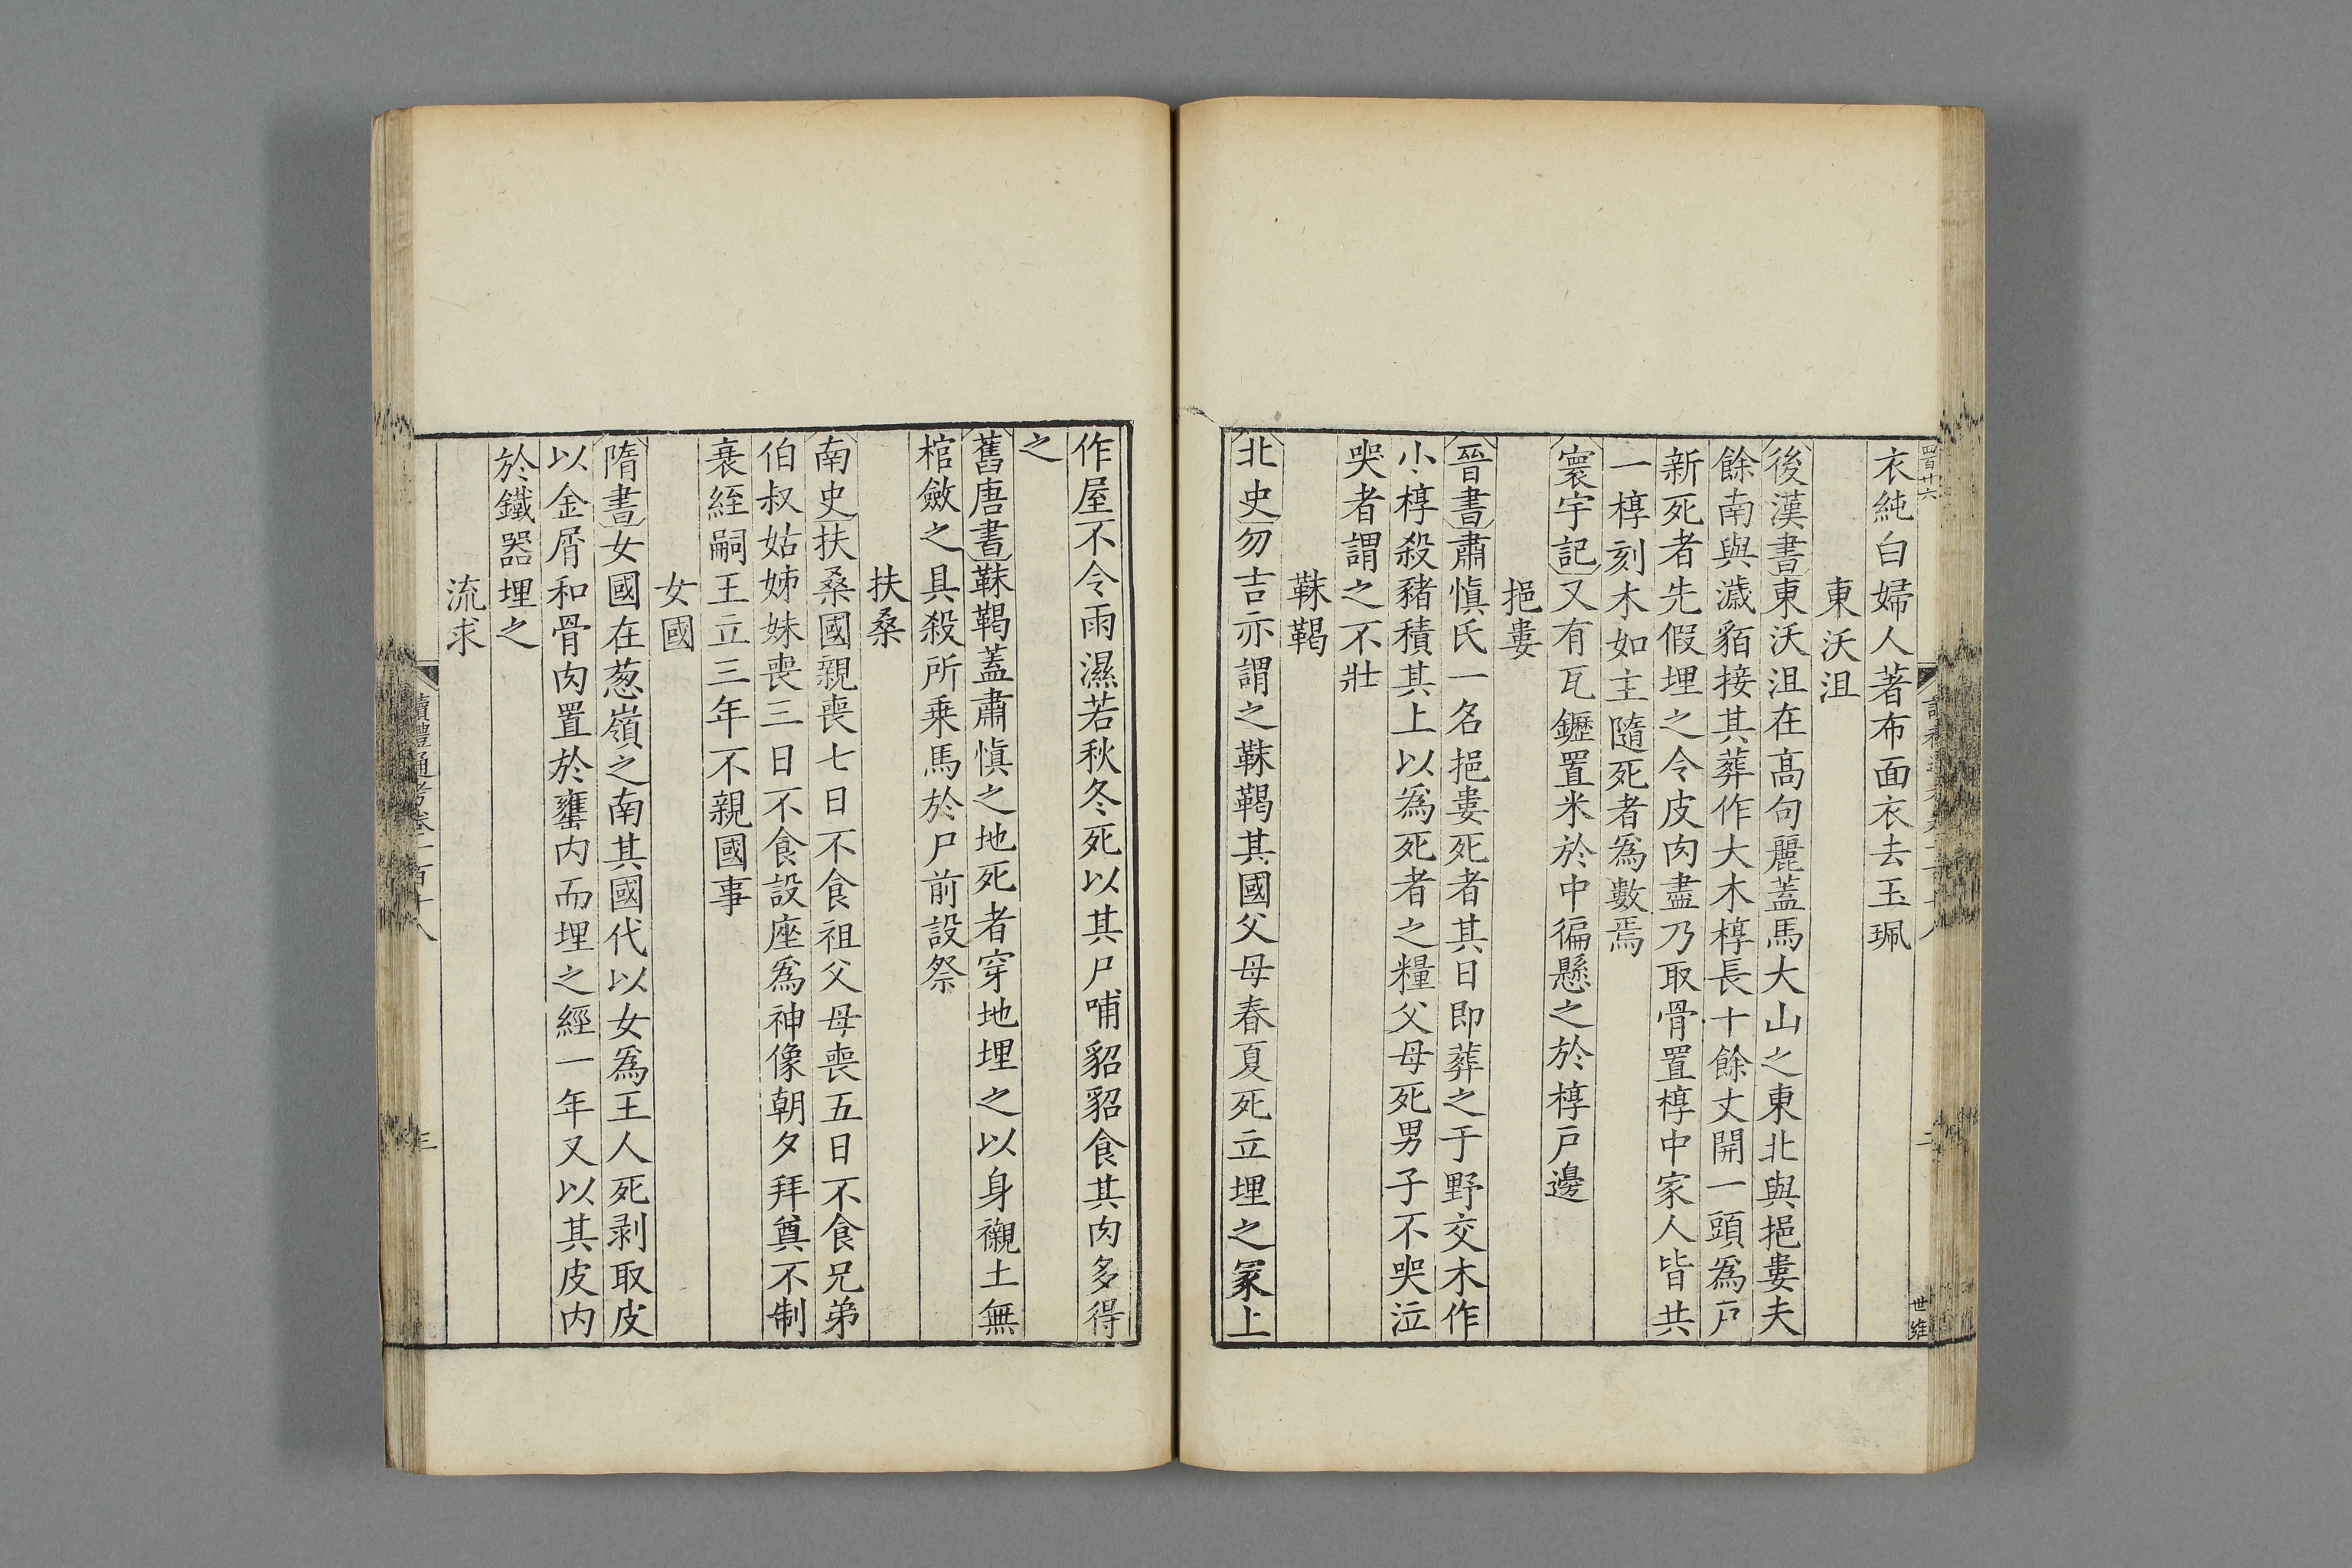 四百廿六
世維
衣純白婦人著布面衣去玉珮
東沃沮
後漢書東沃沮在高句麗蓋馬大山之東北與挹婁夫
餘南與濊貊接其葬作大木槨長十餘丈開一頭爲戸
新死者先假埋之令皮肉盡乃取骨置槨中家人皆共
一槨刻木如主隨死者爲數焉
寰宇記又有瓦䥶置米於中徧懸之於槨戸邊
挹婁
晉書肅愼氏一名挹婁死者其日即葬之于野交木作
小槨殺豬積其上以爲死者之糧父母死男子不哭泣
哭者謂之不壯
靺鞨
北史勿吉亦謂之靺鞨其國父母春夏死立埋之冢上
作屋不令雨濕若秋冬死以其尸哺貂貂食其肉多得
之
舊唐書靺鞨蓋肅愼之地死者穿地埋之以身襯土無
棺斂之具殺所乗馬於尸前設祭
扶桑
南史扶桑國親喪七日不食祖父母喪五日不食兄弟
伯叔姑姊妹喪三日不食設座爲神像朝夕拜奠不制
衰絰嗣王立三年不親國事
女國
隋書女國在葱嶺之南其國代以女爲王人死剥取皮
以金屑和骨肉置於甕内而埋之經一年又以其皮内
於鐵器埋之
流求
讀禮通考卷一百十八
三